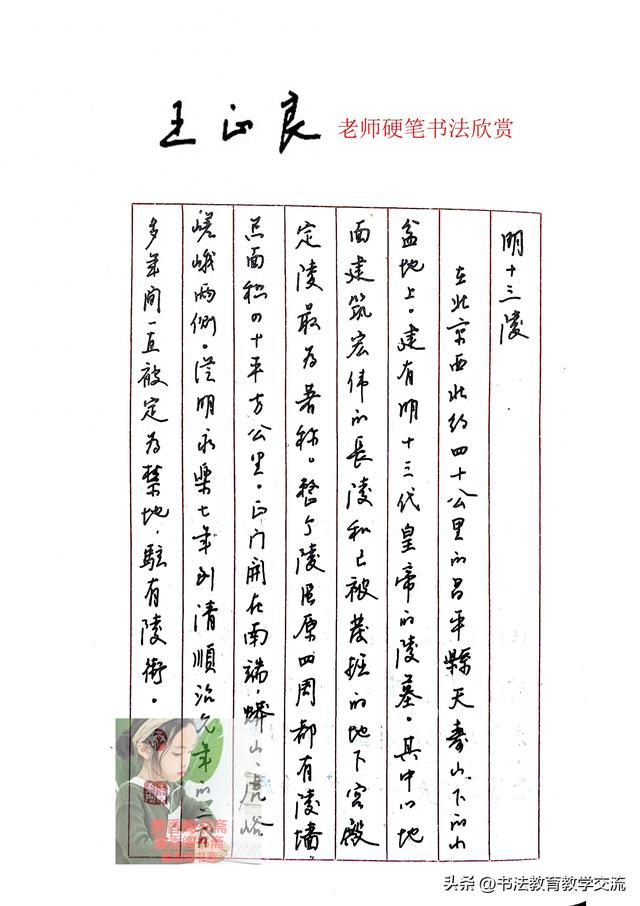 王正良 老师硬笔书法欣赏
明十三陵
在北京西北约四十公里的昌平縣天寿山下的小
盆地上。建有明十三代皇帝的陵墓。其中以地
面建筑宏伟的長陵和已被发掘的地下宫殿
定陵最为著称。整个陵区原四周都有陵墙，
总面积四十平方公里。正门開在南端，蟒山、虎峪
嵯峨两側。從明永樂七年到清順治元年的二百
多年间一直被定为禁地，駐有陵衛。
头条 @书法教育教学交流